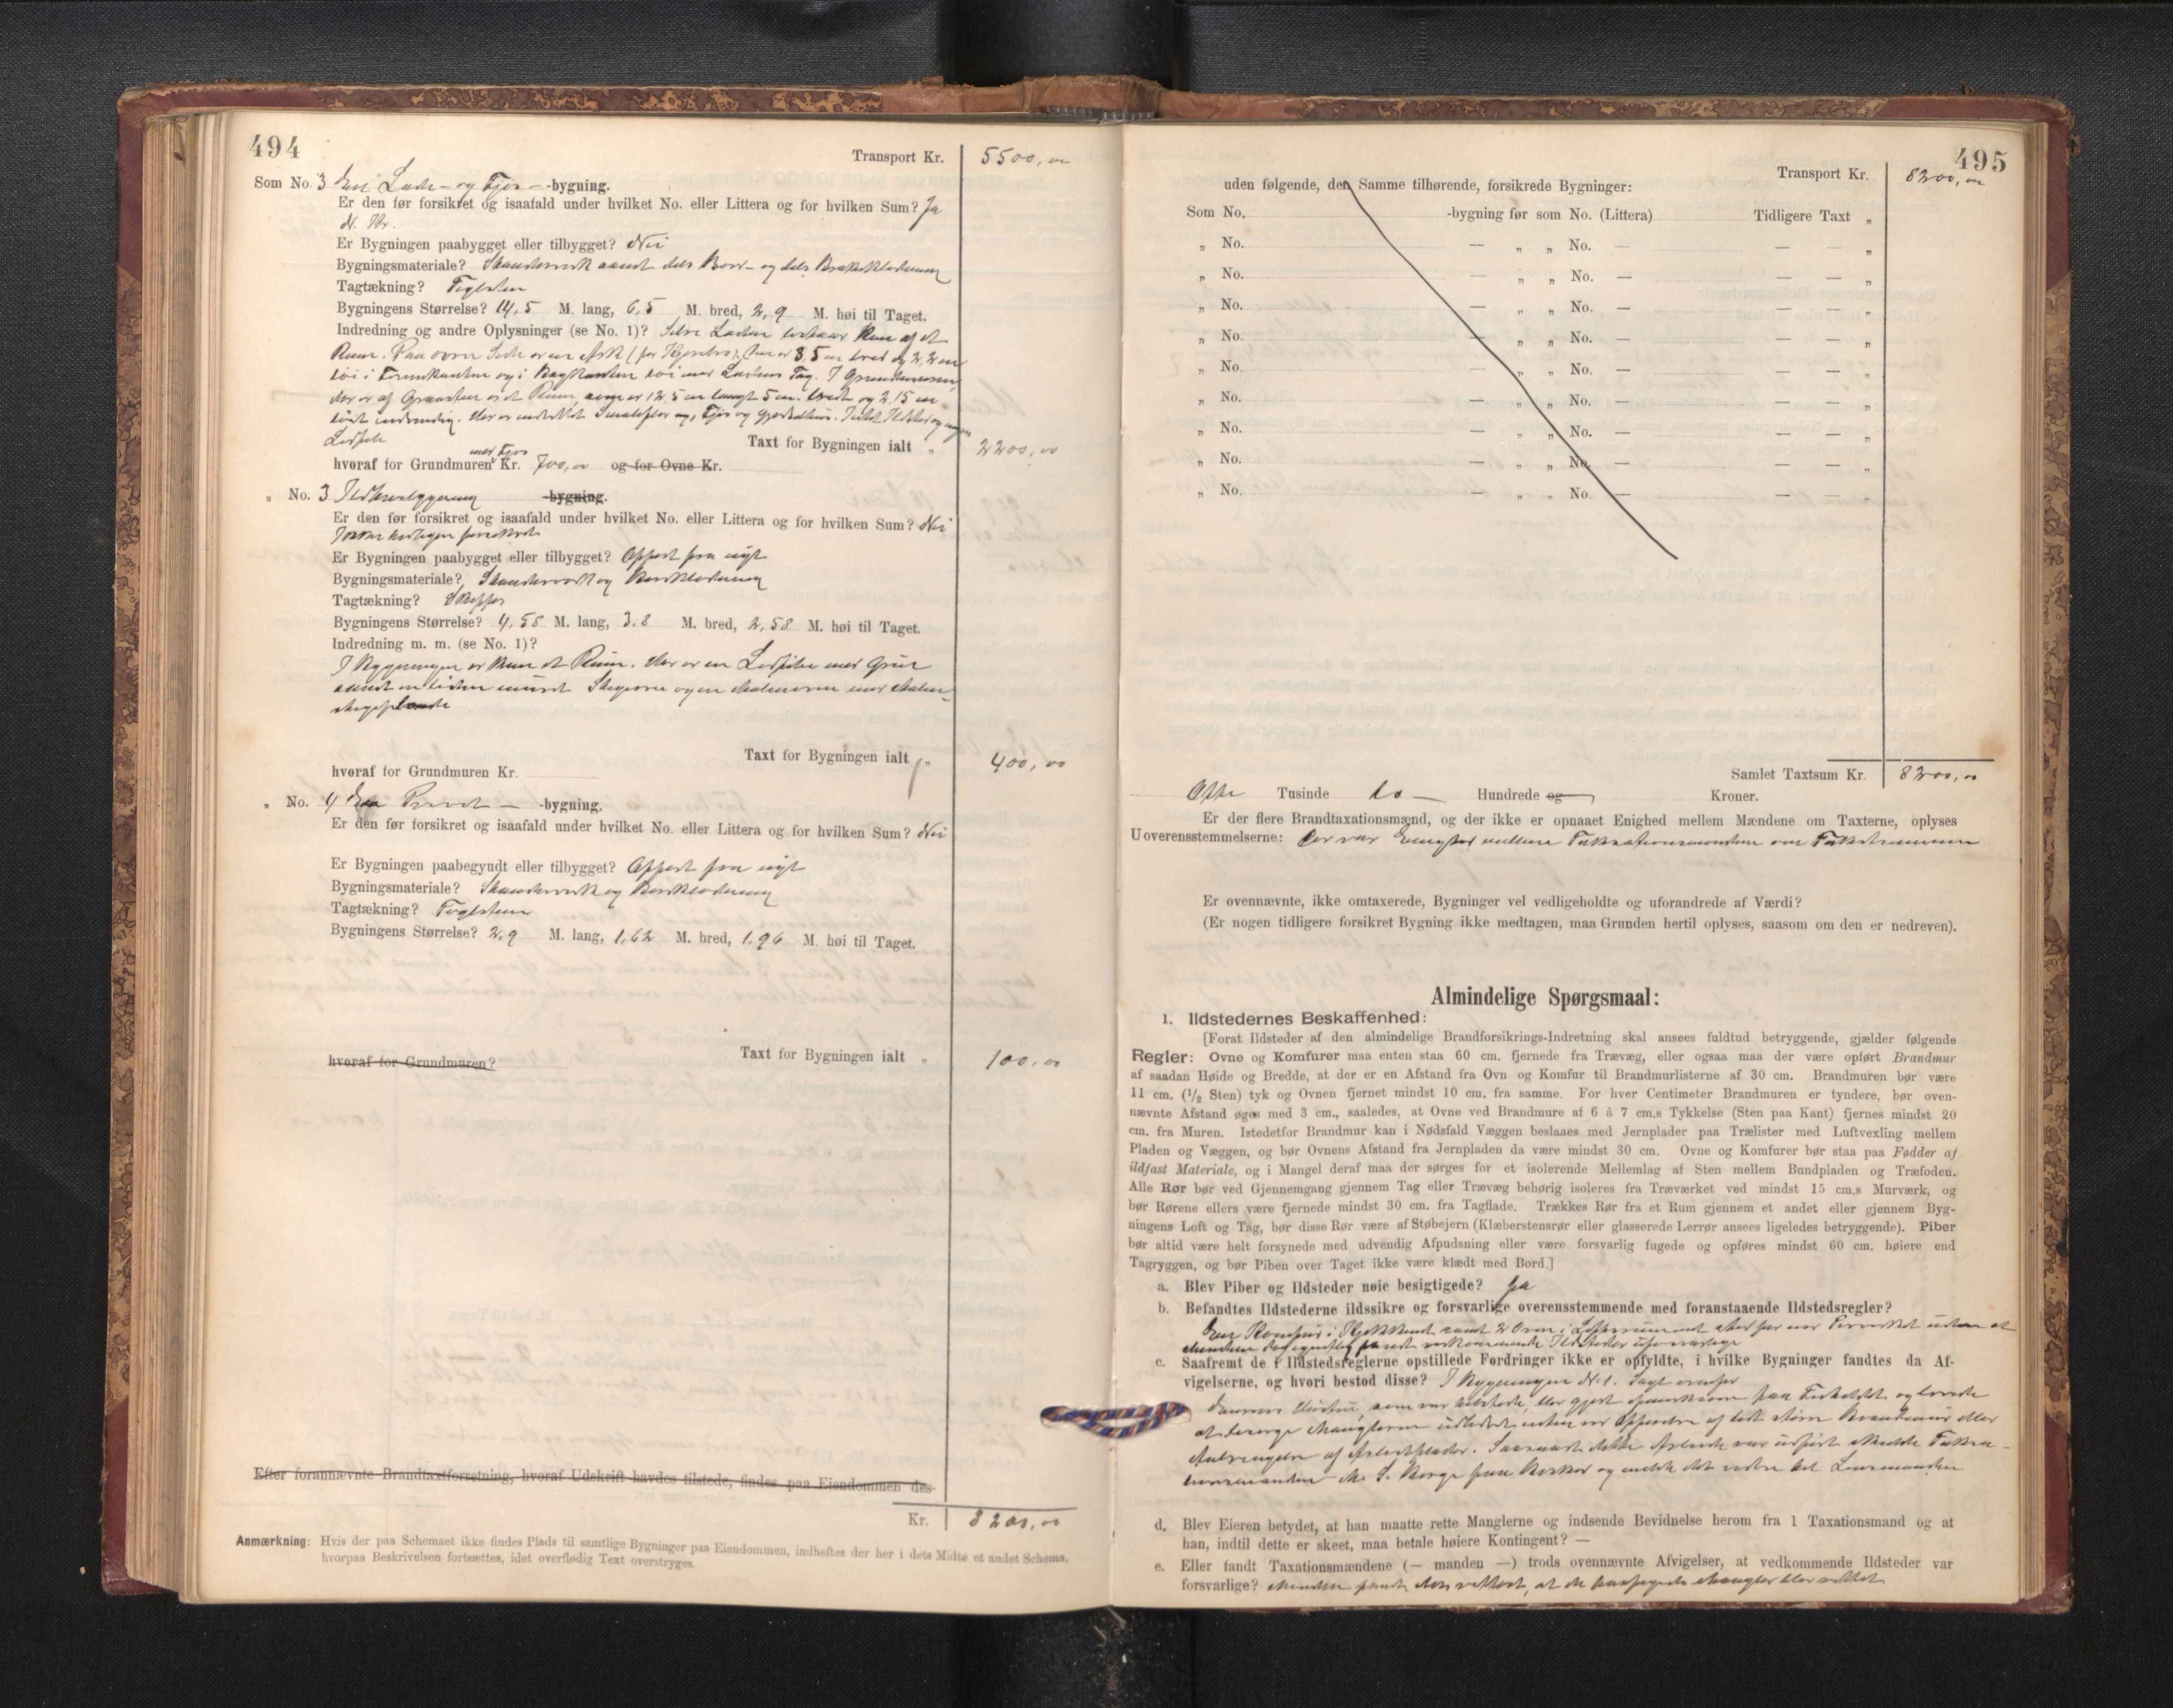 494
Transport Kr. 5500,00
Som No. 3 En Lade- og Fjøs- -bygning.
Er den før forsikret og isaafald under hvilket No. eller Littera og for hvilken Sum? Ja
Er Bygningen paabygget eller tilbygget? Nei
Bygningsmateriale? Skandsverk samt dels Bord- og dels
Tagtækning? Teglsten
Bygningens Størrelse? 14,5 M. lang, 6,5 M. bred, 2,9 M. høi til Taget.
Indredning og andre Oplysninger (se No. 1)? Selve Laden bestaar kun af et
Rum. Paa øvre Side er en Ark (for Kjørebro), den er 3,5 m bred og 2,2 m
høi i Forkanten og i Bagkanten høi med Ladens Tag. I Grundmuren,
der er af Graasten er et Rum, som er 12,5 m langt 5 m. bredt og 2,15 m
høit indvendig. Der er indredet og, Fjøs og Gjødselhus. Intet Ildsted og ingen
Ledpibe
Taxt for Bygningen ialt „ 2200,00
hvoraf for Grundmuren med Fjøs Kr. 700,00 og for Ovne Kr.
„ No. 3 Ildhusbygning -bygning.
Er den før forsikret og isaafald under hvilket No. eller Littera og for hvilken Sum? Nei
Er Bygningen paabygget eller tilbygget? Opført fra nyt
Bygningsmateriale? Skandsverk og Bordklædning
Tagtækning? Skiffer
Bygningens Størrelse? 4,58 M. lang, 3,8 M. bred, 2,58 M. høi til Taget.
Indredning m. m. (se No. 1)?
I Bygningen er kun et Rum. Der er en Ledpibe med Grue
samt en liden muret og en med
Taxt for Bygningen ialt „ 400,00
hvoraf for Grundmuren Kr.
„ No. 4 En Privet- -bygning.
Er den før forsikret og isaafald under hvilket No. eller Littera og for hvilken Sum? Nei
Er Bygningen paabegyndt eller tilbygget? Opført fra nyt
Bygningsmateriale? Skandsverk og Bordklædning
Tagtækning? Teglsten
Bygningens Størrelse? 2,9 M. lang, 1,62 M. bred, 1,96 M. høi til Taget.
Taxt for Bygningen ialt „ 100,00
hvoraf for Grundmuren?
Efter forannævnte Brandtaxtforretning, hvoraf Udskrift havdes tilstede, findes paa Eiendommen des-
Kr. 8200,00
Anmærkning: Hvis der paa Schemaet ikke findes Plads til samtlige Bygninger paa Eiendommen, indheftes der her i dets Midte et andet Schema,
hvorpaa Beskrivelsen fortsættes, idet overflødig Text overstryges.
495
Transport Kr. 8200,00
uden følgende, den Samme tilhørende, forsikrede Bygninger:
Som No. -bygning før som No. (Littera) Tidligere Taxt „
„ No. — „ „ No. — — — „
„ No. — „ „ No. — — — „
„ No. — „ „ No. — — — „
„ No. — „ „ No. — — — „
„ No. — „ „ No. — — — „
„ No. — „ „ No. — — — „
„ No. — „ „ No. — — — „
„ No. — „ „ No. — — — „
„ No. — „ „ No. — — — „
Samlet Taxtsum Kr. 8200,00
Otte Tusinde to — Hundrede og Kroner.
Er der flere Brandtaxationsmænd, og der ikke er opnaaet Enighed mellem Mændene om Taxterne, oplyses
Uoverensstemmelserne: Der var Enighed mellem Taksationsmændene om Takstsummen
Er ovennævnte, ikke omtaxerede, Bygninger vel vedligeholdte og uforandrede af Værdi?
(Er nogen tidligere forsikret Bygning ikke medtagen, maa Grunden hertil oplyses, saasom om den er nedreven).
Almindelige Spørgsmaal:
1. Ildstedernes Beskaffenhed:
[Forat Ildsteder af den almindelige Brandforsikrings-Indretning skal ansees fuldtud betryggende, gjælder følgende
Regler: Ovne og Komfurer maa enten staa 60 cm. fjernede fra Trævæg, eller ogsaa maa der være opført Brandmur
af saadan Høide og Bredde, at der er en Afstand fra Ovn og Komfur til Brandmurlisterne af 30 cm. Brandmuren bør være
11 cm. (1/2 Sten) tyk og Ovnen fjernet mindst 10 cm. fra samme. For hver Centimeter Brandmuren er tyndere, bør oven-
nævnte Afstand øges med 3 cm., saaledes, at Ovne ved Brandmure af 6 à 7 cm.s Tykkelse (Sten paa Kant) fjernes mindst 20
cm. fra Muren. Istedetfor Brandmur kan i Nødsfald Væggen beslaaes med Jernplader paa Trælister med Luftvexling mellem
Pladen og Væggen, og bør Ovnens Afstand fra Jernpladen da være mindst 30 cm. Ovne og Komfurer bør staa paa Fødder af
ildfast Materiale, og i Mangel deraf maa der sørges for et isolerende Mellemlag af Sten mellem Bundpladen og Træfoden.
Alle Rør bør ved Gjennemgang gjennem Tag eller Trævæg behørig isoleres fra Træværket ved mindst 15 cm.s Murværk, og
bør Rørene ellers være fjernede mindst 30 cm. fra Tagflade. Trækkes Rør fra et Rum gjennem et andet eller gjennem Byg-
ningens Loft og Tag, bør disse Rør være af Støbejern (Klæberstensrør eller glasserede Lerrør ansees ligeledes betryggende). Piber
bør altid være helt forsynede med udvendig Afpudsning eller være forsvarlig fugede og opføres mindst 60 cm. høiere end
Tagryggen, og bør Piben over Taget ikke være klædt med Bord.]
a. Blev Piber og Ildsteder nøie besigtigede? Ja
b. Befandtes Ildstederne ildssikre og forsvarlige overensstemmende med foranstaaende Ildstedsregler?
En Komfur i Kjøkkenet samt 2 Ovne i staar for nær Træverket uden at
Mændene fandt vedkommende Ildsteder uforsvarlige
c. Saafremt de i Ildstedsreglerne opstillede Fordringer ikke er opfyldte, i hvilke Bygninger fandtes da Af-
vigelserne, og hvori bestod disse? I Bygningen N.1. Sagt ovenfor
Eierens Hustru, som var tilstede, blev gjort opmerksom paa Forholdet og lovede
at besørge Manglerne udbedret enten ved Opførelse af større Brandmur eller
af . Saasnart dette Arbeide var udført skulde Taksa-
tionsmanden og melde det videre til Lensmanden
d. Blev Eieren betydet, at han maatte rette Manglerne og indsende Bevidnelse herom fra 1 Taxationsmand og at
han, indtil dette er skeet, maa betale høiere Kontingent? —
e. Eller fandt Taxationsmændene (— manden —) trods ovennævnte Afvigelser, at vedkommende Ildsteder var
forsvarlige? Mændene fandt dem , at de Mangler blev rettet